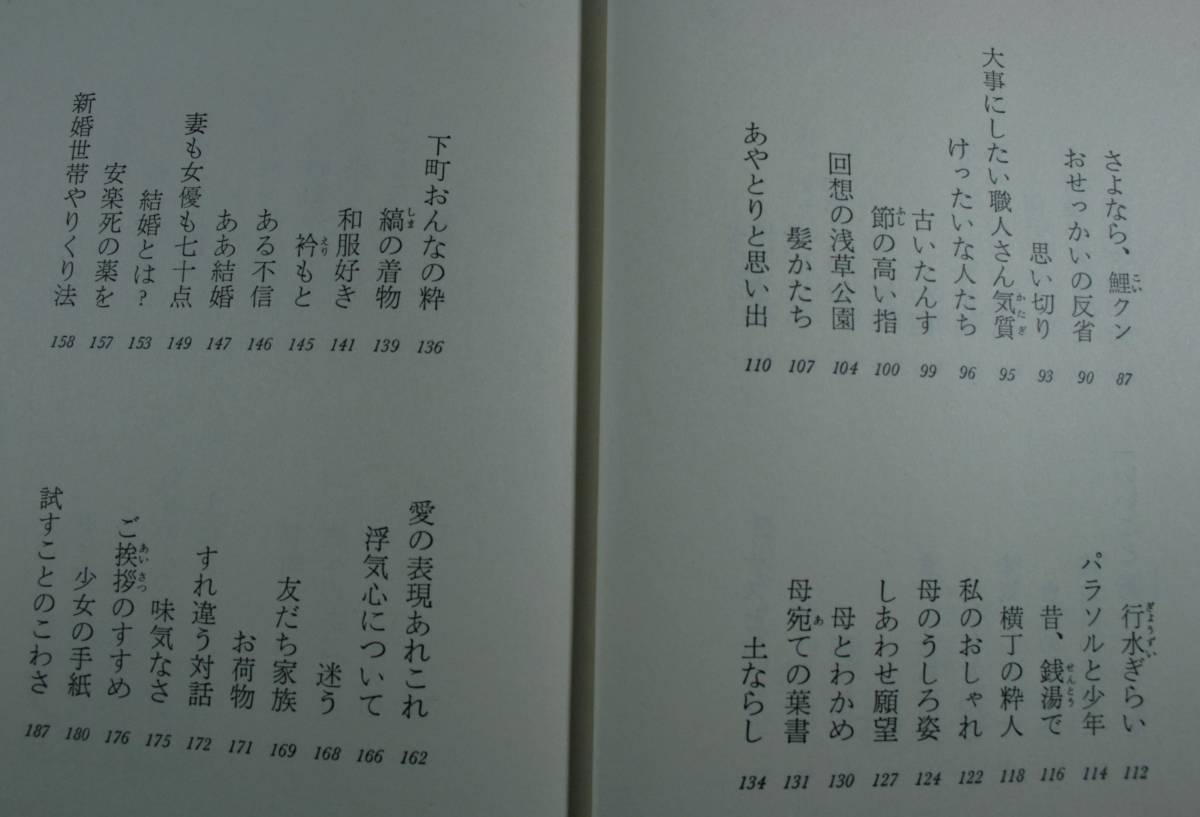 さよなら、鯉クン 87
おせっかいの反省 90
思い切り 93
大事にしたい職人さん気質 95
けったいな人たち 96
古いたんす 99
節の高い指 100
回想の浅草公園 104
髪かたち 107
あやとりと思い出 110
行水ぎらい 112
パラソルと少年 114
昔、銭湯で 116
横丁の粋人 118
私のおしゃれ 122
母のうしろ姿 124
しあわせ願望 127
母とわかめ 130
母宛ての葉書 131
土ならし 134
下町おんなの粋 136
縞の着物 139
和服好き 141
衿もと 145
ある不信 146
ああ結婚 147
妻も女優も七十点 149
結婚とは? 153
安楽死の薬を 157
新婚世帯やりくり法 158
愛の表現あれこれ 162
浮気心について 166
迷う 168
友だち家族 169
お荷物 171
すれ違う対話 172
味気なさ 175
ご挨拶のすすめ 176
少女の手紙 180
試すことのこわさ 187